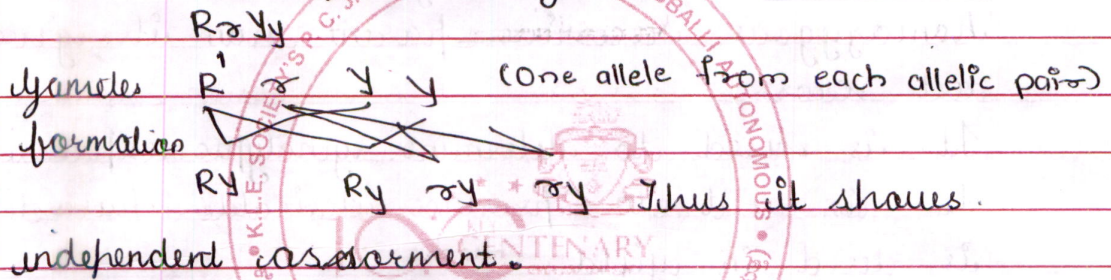 Rr Yy
Gametes R r Y y (One allele from each allelic pair)
formation
RY Ry rY ry Thus it shows
independent assorment.
K.L.E. SOCIETY'S P. C. AUTONOMOUS
CENTENARY